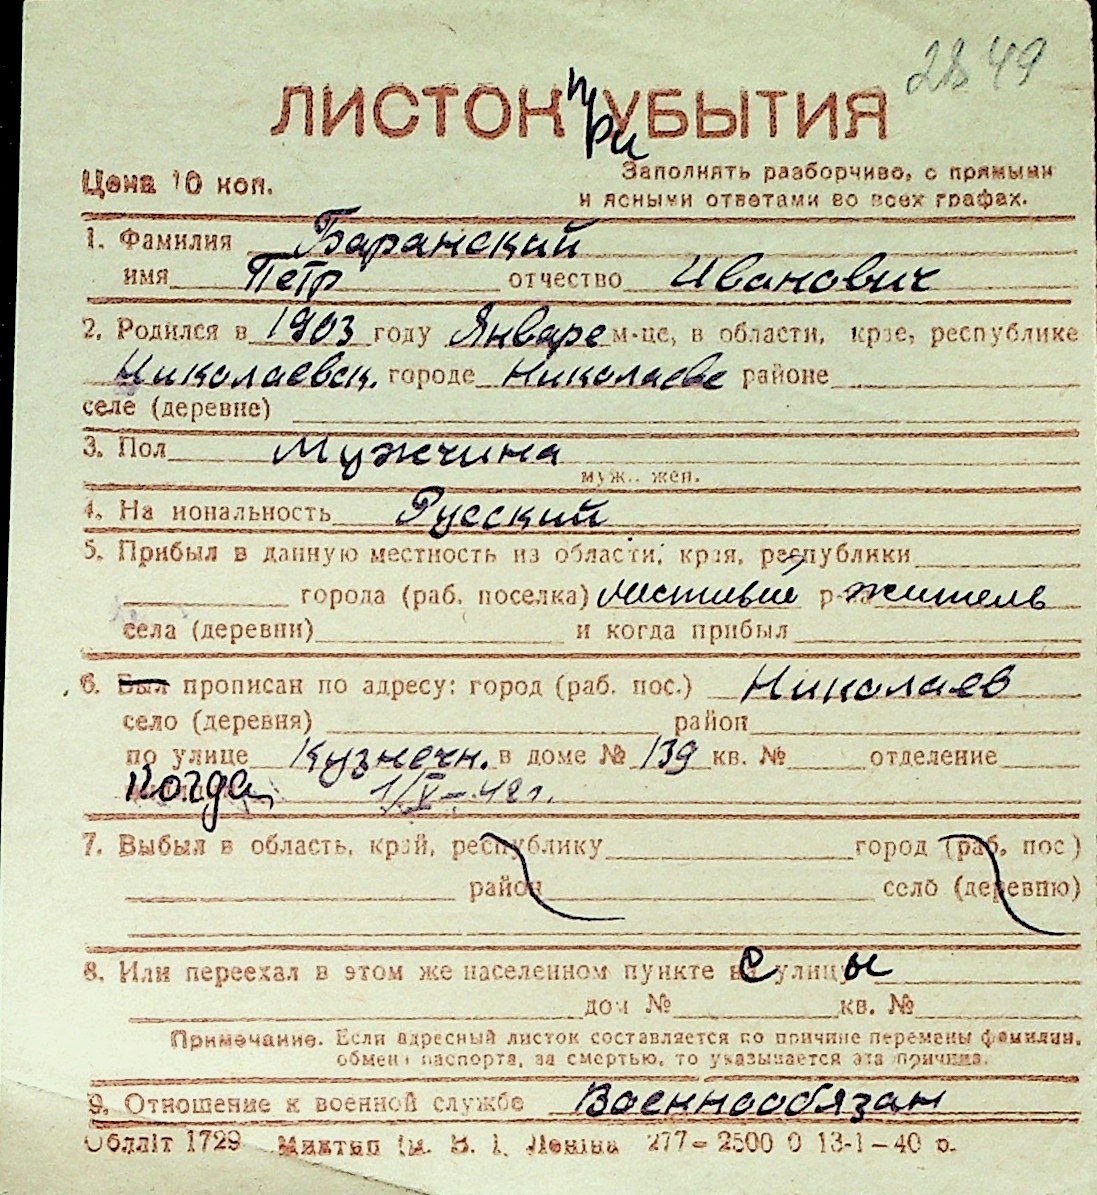 2849
ЛИСТОК при УБЫТИЯ
Цена 10 коп.
Заполнять разборчиво, с прямыми
и ясными ответами во всех графах.
1. Фамилия Баранский
имя Петр отчество Иванович
2. Родился в 1903 году Январе м-це, в области, крае, республике
Николаевск. городе Николаеве районе
селе (деревне)
3. Пол Мужчина
муж.. жен.
4. На иональность Русский
5. Прибыл в данную местность из области, края, республики
города (раб. поселка) местный р-на житель
села (деревни) и когда прибыл
6. Был прописан по адресу: город (раб. пос.) Николаев
село (деревня) район
по улице Кузнечн. в доме № 139 кв. № отделение
Когда 1/V-42г.
7. Выбыл в область, край, республику город (раб. пос)
район село (деревню)
8. Или переехал в этом же населенном пункте с улицы
дом № кв. №
Примечание. Если адресный листок составляется по причине перемены фамилии,
обмен паспорта, за смертью, то указывается эта причина.
9. Отношение к военной службе Военнообязан
Обллiт 1729 Миктип iм. В. I. Ленiна 277-2500 0 13-1-40 р.